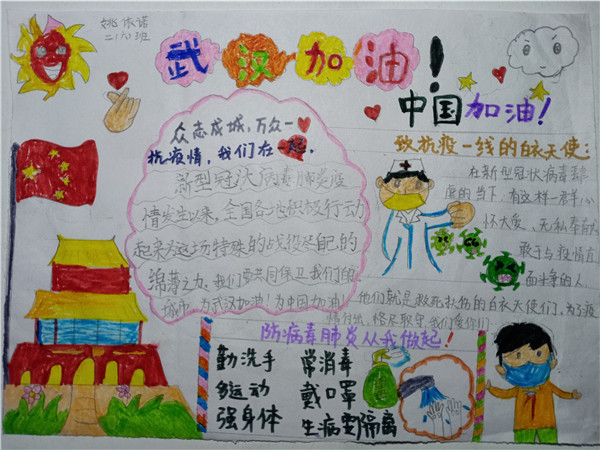 姚依诺
二(八)班
武汉加油!
中国加油!
众志成城,万众一
抗疫情,我们在一起。
新型冠状病毒肺炎疫
情发生以来,全国各地积极行动
起来为这场特殊的战役尽自己的
绵薄之力。我们要共同保卫我们的
城市。为武汉加油!为中国加油
致抗疫一线的白衣天使:
在新型冠状病毒肆
虐的当下,有这样一群人心
怀大爱、无私奉献
敢于与疫情直
面斗争的人。
他们就是救死扶伤的白衣天使们,为了疫
情付出,恪尽职守,我们爱你们
防病毒肺炎从我做起!
勤洗手 常消毒
多运动 戴口罩
强身体 生病要隔离